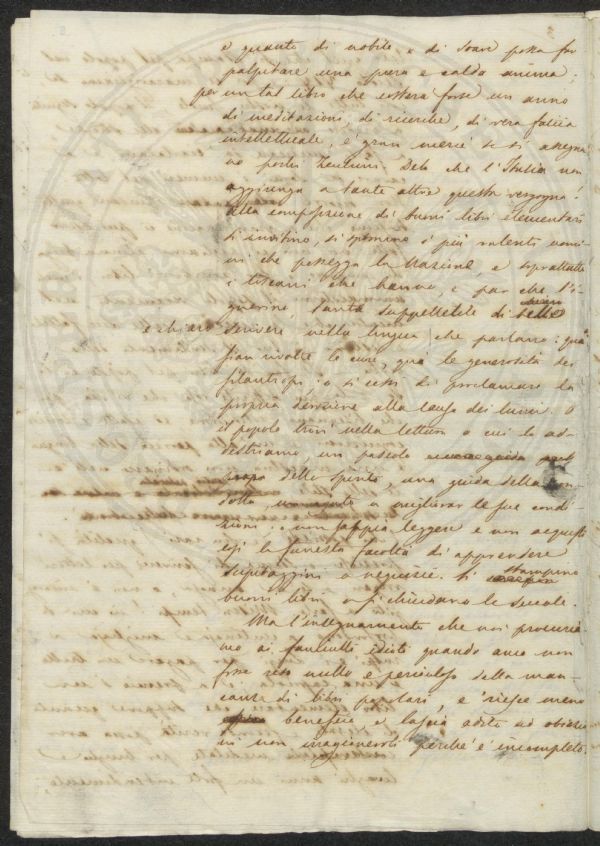 e quanto di nobile e di soave possa far
palpitare una pura e calda anima:
per un tal libro che costerà forse un anno
di meditazioni, di ricerche, di vera fatica
intellettuale, è gran mercè se si assegna
no pochi zecchini. Deh che l'Italia non
aggiunga a tante altre questa vergogna!
Alla composizione di buoni libri elementari
si invitino, si spronino i più valenti uomi
ni che possegga la Nazione, e soprattutto
i toscani che hanno, e par che l'i
gnorino tanta suppellettile di bello
e chiaro scrivere nella lingua che parlano: quà
sian rivolte le cure, quà le generosità dei
filantropi: o si cessi di proclamare la
propria devozione alla causa dei lumi. O
il popolo trovi nella lettura a cui lo ad-
destriamo, un pascolo
dello spirito, una guida della con
dotta, un ajuto a migliorar le sue condi
zioni: o non sappia leggere e non acquisti
così la funesta facoltà di apprendere
scipitaggini o nequizie. Si stampino
buoni libri o si chiudano le scuole.
Ma l'insegnamento che noi procuria
mo ai fanciulli idioti quando anco non
fosse reso nullo e pericoloso dalla man
canza di libri popolari, e riesce meno
benefico, e lascia adito ad obiezio
ni non irragionevoli perchè è incompleto.